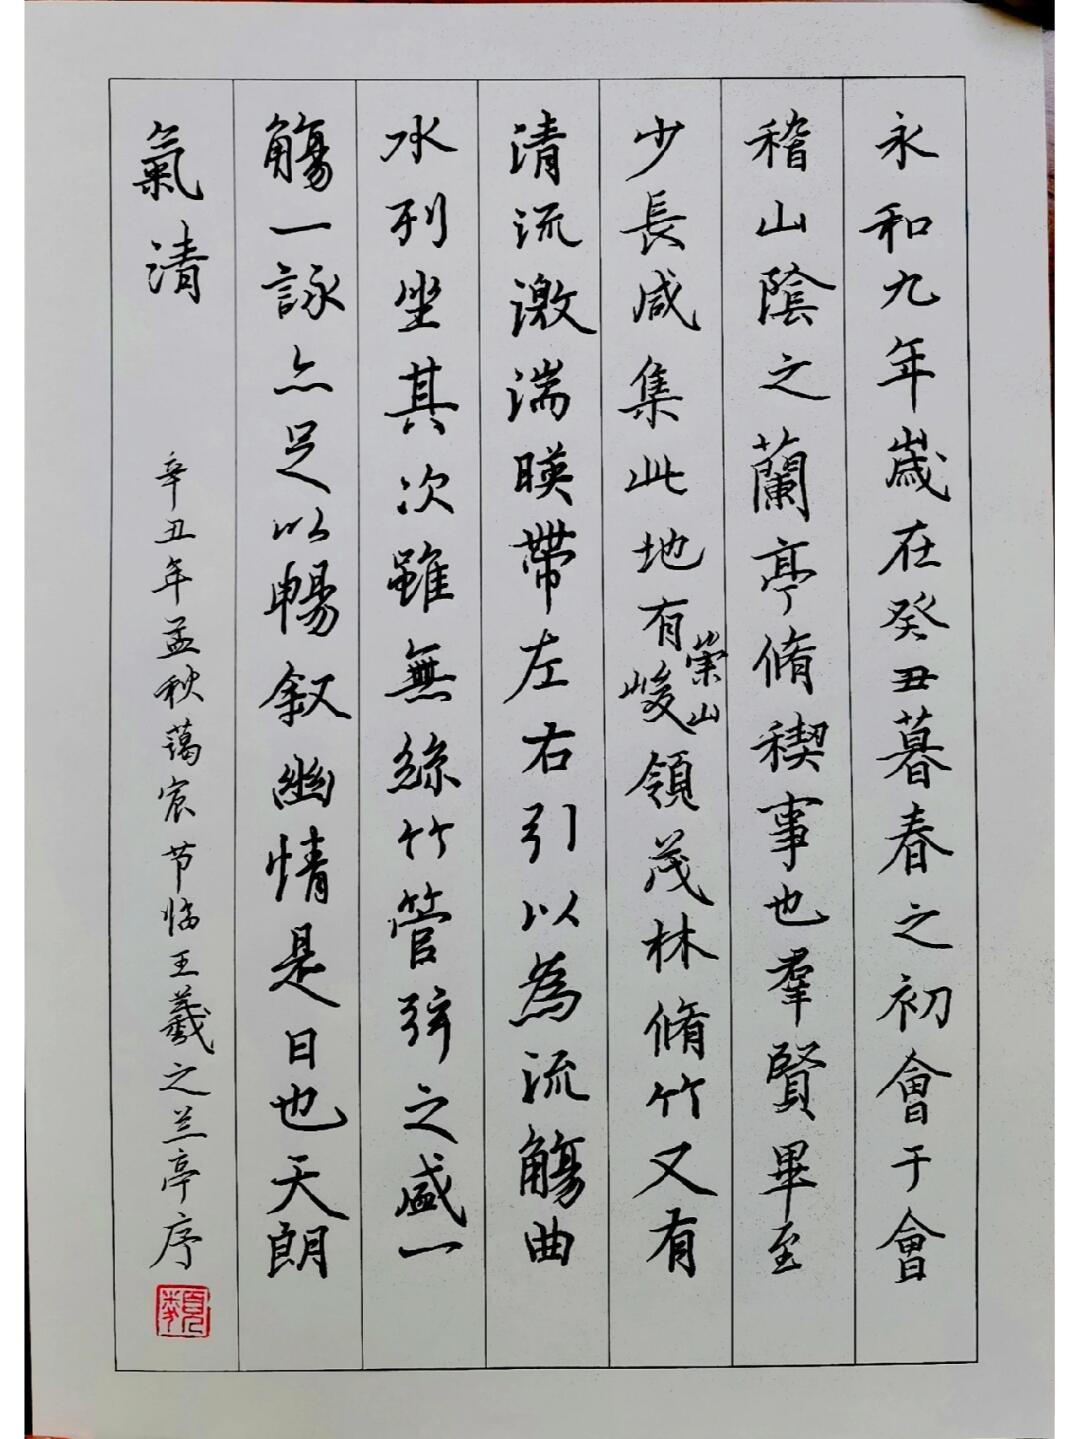 永和九年歲在癸丑暮春之初會于會
稽山陰之蘭亭脩禊事也羣賢畢至
少長咸集此地有崇山峻領茂林脩竹又有
清流激湍暎帶左右引以為流觴曲
水列坐其次雖無絲竹管弦之盛一
觴一詠亦足以暢叙幽情是日也天朗
氣清
辛丑年孟秋蔼宸节临王羲之兰亭序